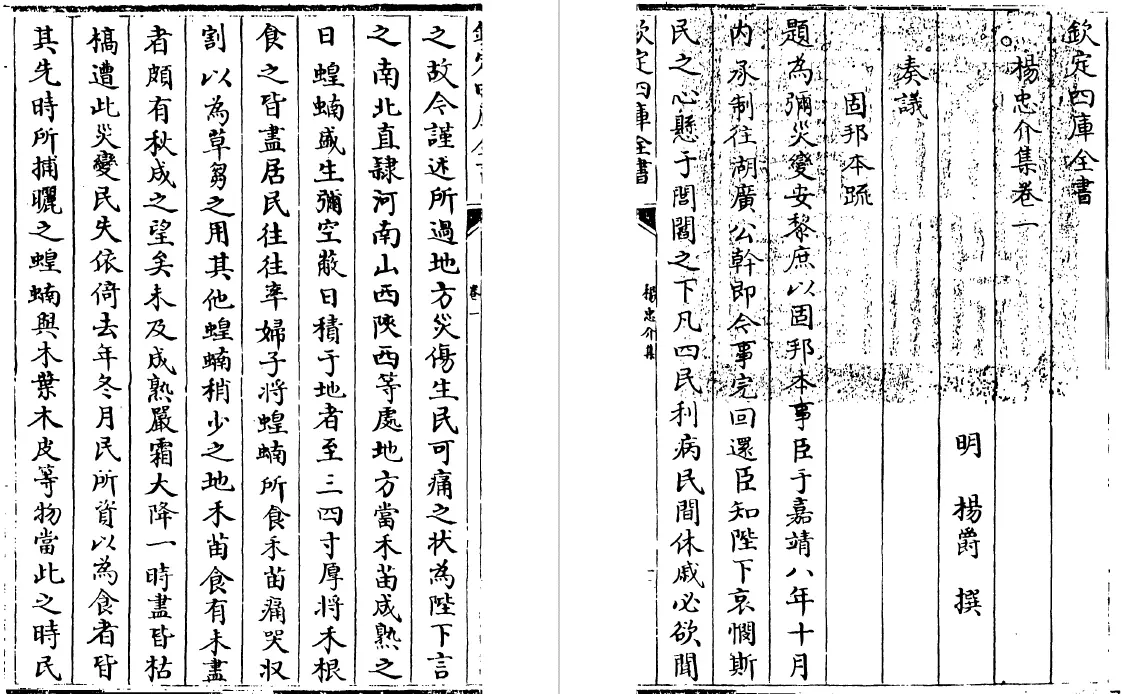 欽定四庫全書
楊忠介集卷一
明 楊爵 撰
奏議
固邦本䟽
題為彌災變安黎庶以固邦本事臣于嘉靖八年十月
内承制往湖廣公幹即今事完回還臣知陛下哀憫斯
民之心懸于閭閻之下凡四民利病民間休戚必欲聞
欽定四庫全書
楊忠介集
卷一
之故今謹述所過地方災傷生民可痛之狀為陛下言
之南北直隷河南山西陜西等處地方當禾苗成熟之
日蝗蝻盛生彌空蔽日積于地者至三四寸厚將禾根
食之皆盡居民往往率婦子將蝗蝻所食禾苗痛哭収
割以為草芻之用其他蝗蝻稍少之地禾苗食有未盡
者頗有秋成之望矣未及成熟嚴霜大降一時盡皆枯
槁遭此災變民失依倚去年冬月民所資以為食者皆
其先時所捕曬之蝗蝻與木葉木皮等物當此之時民